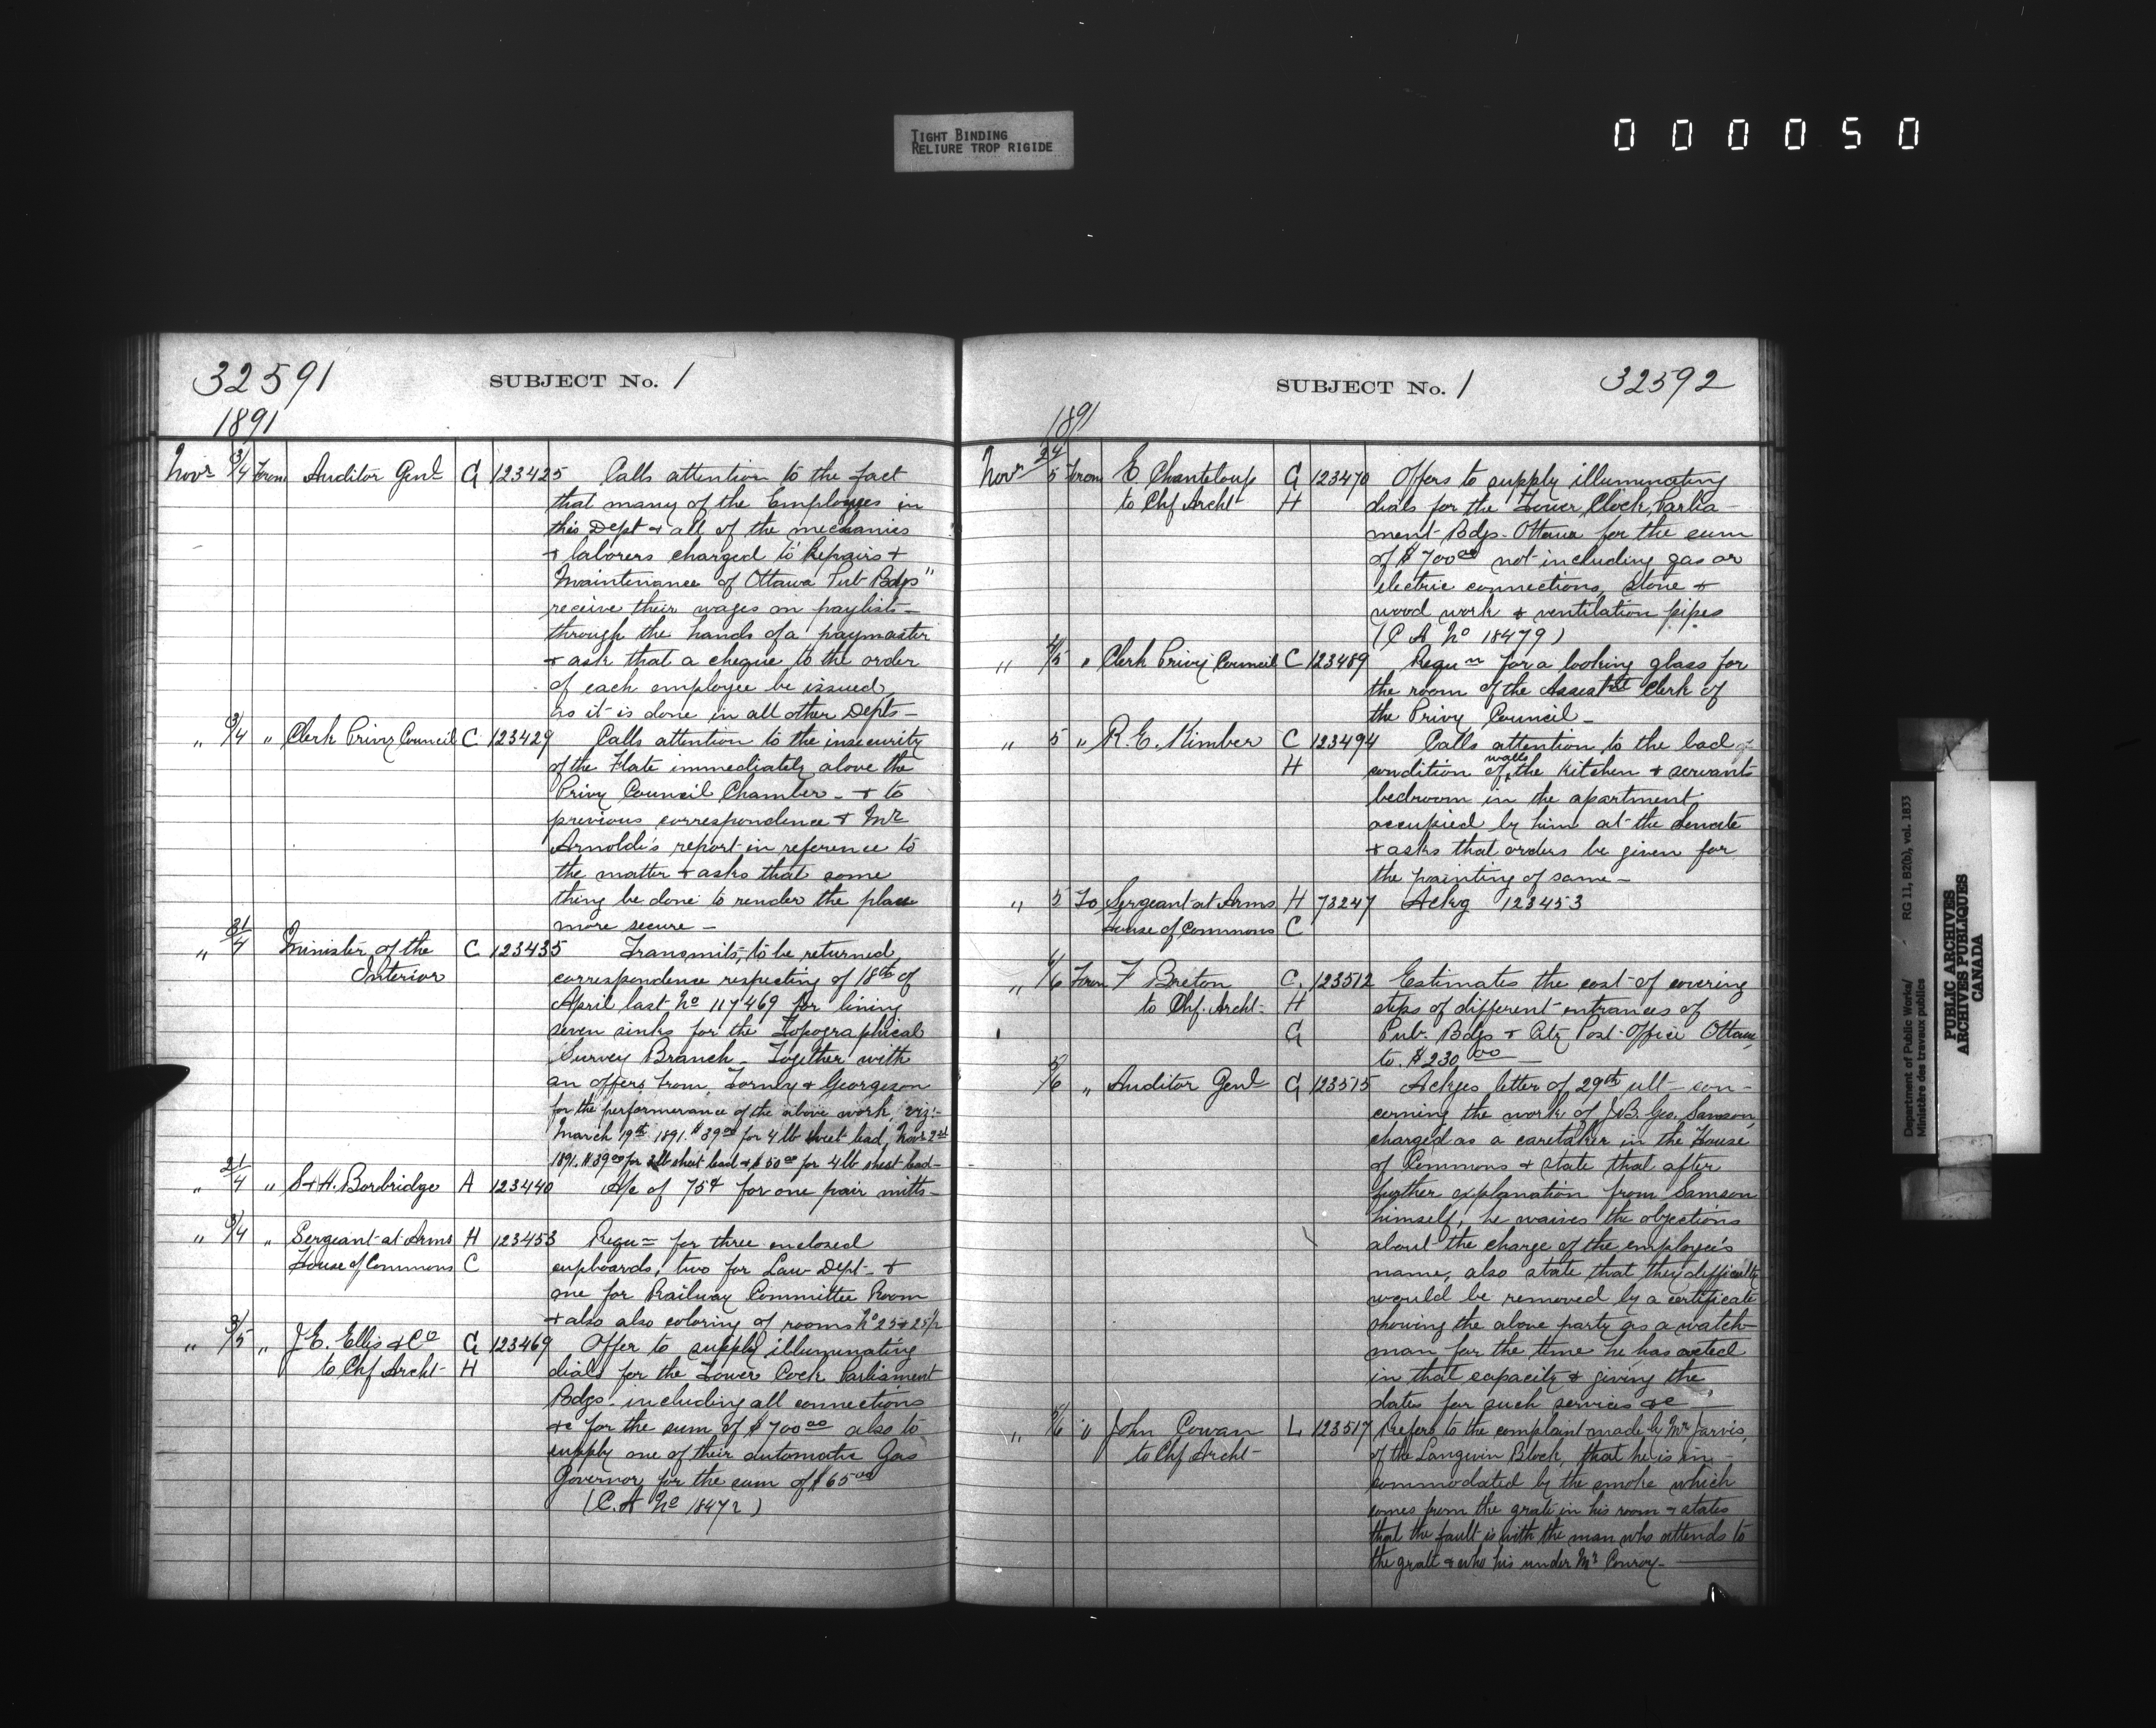 TIGHT BINDING
RELIURE TROP RIGIDE
000050
32591
SUBJECT No. 1
1891
Novr 3/4 From Auditor Genl G 123425 Calls attention to the fact
that many of the Employees in
this Dept & all of the mechanics
& laborers charged to "Repairs &
Maintenance of Ottawa Pub Bdgs"
receive their wages on paylists
through the hands of a paymaster
& ask that a cheque to the order
of each employee be issued,
as it is done in all other Depts -
" 3/4 " Clerk Privy Council C 123429 Calls attention to the insecurity
of the Flate immediately above the
Privy Council Chamber - & to
previous correspondence & Mr
Arnoldi's report in reference to
the matter & asks that some
thing be done to render the place
more secure -
" 31/4 Minister of the C 123435 Transmits, to be returned,
Interior correspondence respecting of 18th of
April last No 117469 for lining
seven sinks for the Topographical
Survey Branch - Together with
an offers from Torney & Georgeson
for the performerance of the above work, viz:-
March 19th 1891. $39.00 for 4 lb sheet lead, Novr 2nd
1891. $39.00 for 3 lb sheet lead & $50.00 for 4 lb sheet lead -
" 21/4 " S & H. Borbridge A 123440 A/c of 75¢ for one pair mitts -
" 3/4 " Sergeant-at-Arms H 123453 Requn for three enclosed
House of Commons C cupboards, two for Law Dept - &
one for Railway Committee Room
& also also coloring of rooms No 25 & 25½
" 3/5 " J. E. Ellis & Co G 123469 Offer to supply illuminating
to Chf Archt - H dials for the Tower Cock Parliament
Bdgs - including all connections
&c for the sum of $700.00 also to
supply one of their automatic Gas
Governor for the sum of $65.00
(C. A No 18472)
SUBJECT No. 1
32592
1891
Novr 24/5 From E. Chanteloup G 123470 Offers to supply illuminating
to Chf Archt - H dials for the Tower Clock, Parlia -
ment Bdgs - Ottawa for the sum
of $700.00 not including gas or
electric connections, stone &
wood work & ventilation pipes
(C A No 18479)
" 4/5 " Clerk Privy Council C 123489 Requn for a looking glass for
the room of the Assistnt Clerk of
the Privy Council -
" 5 " R. E. Kimber C 123494 Calls attention to the bad
H condition of walls the Kitchen & servants
bedroom in the apartment
occupied by him at the Senate
& asks that orders be given for
the painting of same -
" 5 To Sergeant at Arms H 73247 Ackng 123453
House of Commons C
" 4/6 From F Breton C. 123512 Estimates the cost of covering
to Chf. Archt - H steps of different entrances of
G Pub. Bdgs & City Post-Office Ottawa,
to $230.00
5/6 " Auditor Genl G 123515 Ackges letter of 29th ult - con -
cerning the work of J. B. Geo. Samson,
charged as a caretaker in the House
of Commons & state that after
further explanation from Samson
himself, he waives the objections
about the charge of the employee's
name, also state that they difficulty
would be removed by a certificate
showing the above party as a watch-
man for the time he has acted
in that capacity & giving the
dates for such services &c
" 5/6 " John Cowan L 123517 Refers to the complaint made by Mr Jarvis,
to Chf Archt - of the Langevin Block, that he is in -
commodated by the smoke which
comes from the grate in his room & states
that the fault is with the man who attends to
the grate & who his under Mr Conroy -
Department of Public Works/
Ministère des travaux publics
RG 11, B2(b), vol. 1833
PUBLIC ARCHIVES
ARCHIVES PUBLIQUES
CANADA